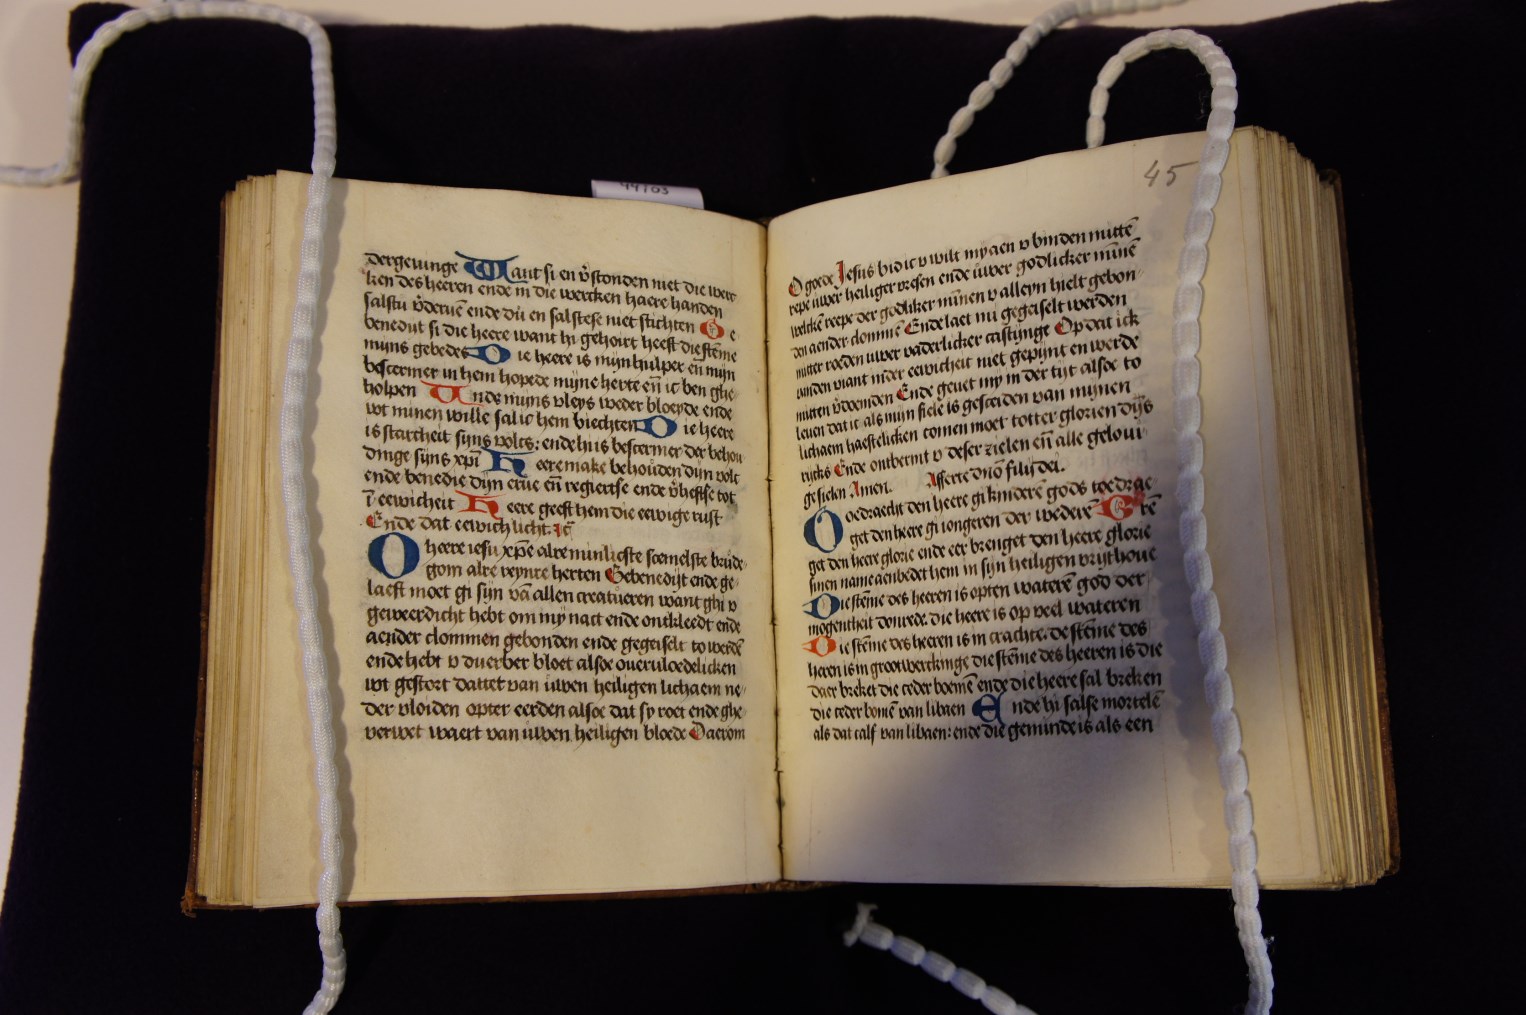 dergeuinge Want si en v̄stonden niet die werc
ken des heeren ende in die wercken haere handen
salstu v̄deruē ende dū en salstese niet stichten Ge
benedijt si die heere want hi gehoirt heeft die stēme
mijns gebedes Die heere is mijn hulper en̄ mijn
bescermer in hem hopede mijne herte en̄ ic ben ghe
holpen Ende mijns vleys weder bloeyde ende
wt minen wille sal ic hem biechten Die heere
is starcheit sijns volcs: ende hi is bescermer der behou
dinge sijns xpī Heere make behouden dijn volc
ende benedie dijn erue en̄ regiertse ende v̄heftse tot
ī eewicheit Heere geeft hem die eewige rust
Ende dat eewich licht. ic̄
O heere iesu xp̄e alre minlicste scemelste brude
gom alre reynre herten Gebenedijt ende ge
laeft moet gi sijn vā allen creatueren want ghi v
geweerdicht hebt om mij nact ende ontkleedt ende
aender clommen gebonden ende gegeiselt to werdē
ende hebt v duerber bloet alsoe oueruloedelicken
wt gestort dattet van uwen heiligen lichaem ne
der vloiden opter eerden alsoe dat sy roet ende ghe
verwet waert van uwen heiligen bloede Daerom
44703
45
O goede Jesus bid ic v wilt my aen v binden mittē
repe uwer heiliger vresen ende uwer godlicker mīnē
welckē reepe der godliker mīnen v alleyn hielt gebon
den aender clommē Ende laet mi gegeiselt werden
mitter roeden uwer vaderlicker castijinge Op dat ick
vanden viant inder eewicheit niet gepijnt en werde
mitten v̄doemden Ende geuet my in der tijt alsoe to
leuen dat ic als mijn siele is gesceiden van mijnen
lichaem haestelicken comen moet totter glorien dijs
rijcks Ende ontbermt v deser zielen en̄ alle geloui
ge sielen Amen. Afferte dn̄o filij dei.
Toedraecht den heere gi kinderē gods toedrae
get den heere gi iongeren der wederē
get den heere glorie ende eer brenget den heere glorie
sinen name aenbedet hem in sijn heiligen vrijthoue
Die stēme des heeren is opten waterē god der
mogentheit donrede. die heere is op veel wateren
Die stēme des heeren is in crachte. de stēme des
heren is in groot werckinge die stēme des heeren is die
daer breket die ceder boemē ende die heere sal breken
die ceder bomē van libaen Ende hi salse mortelē
als dat calf van libaen: ende die geminde is als een